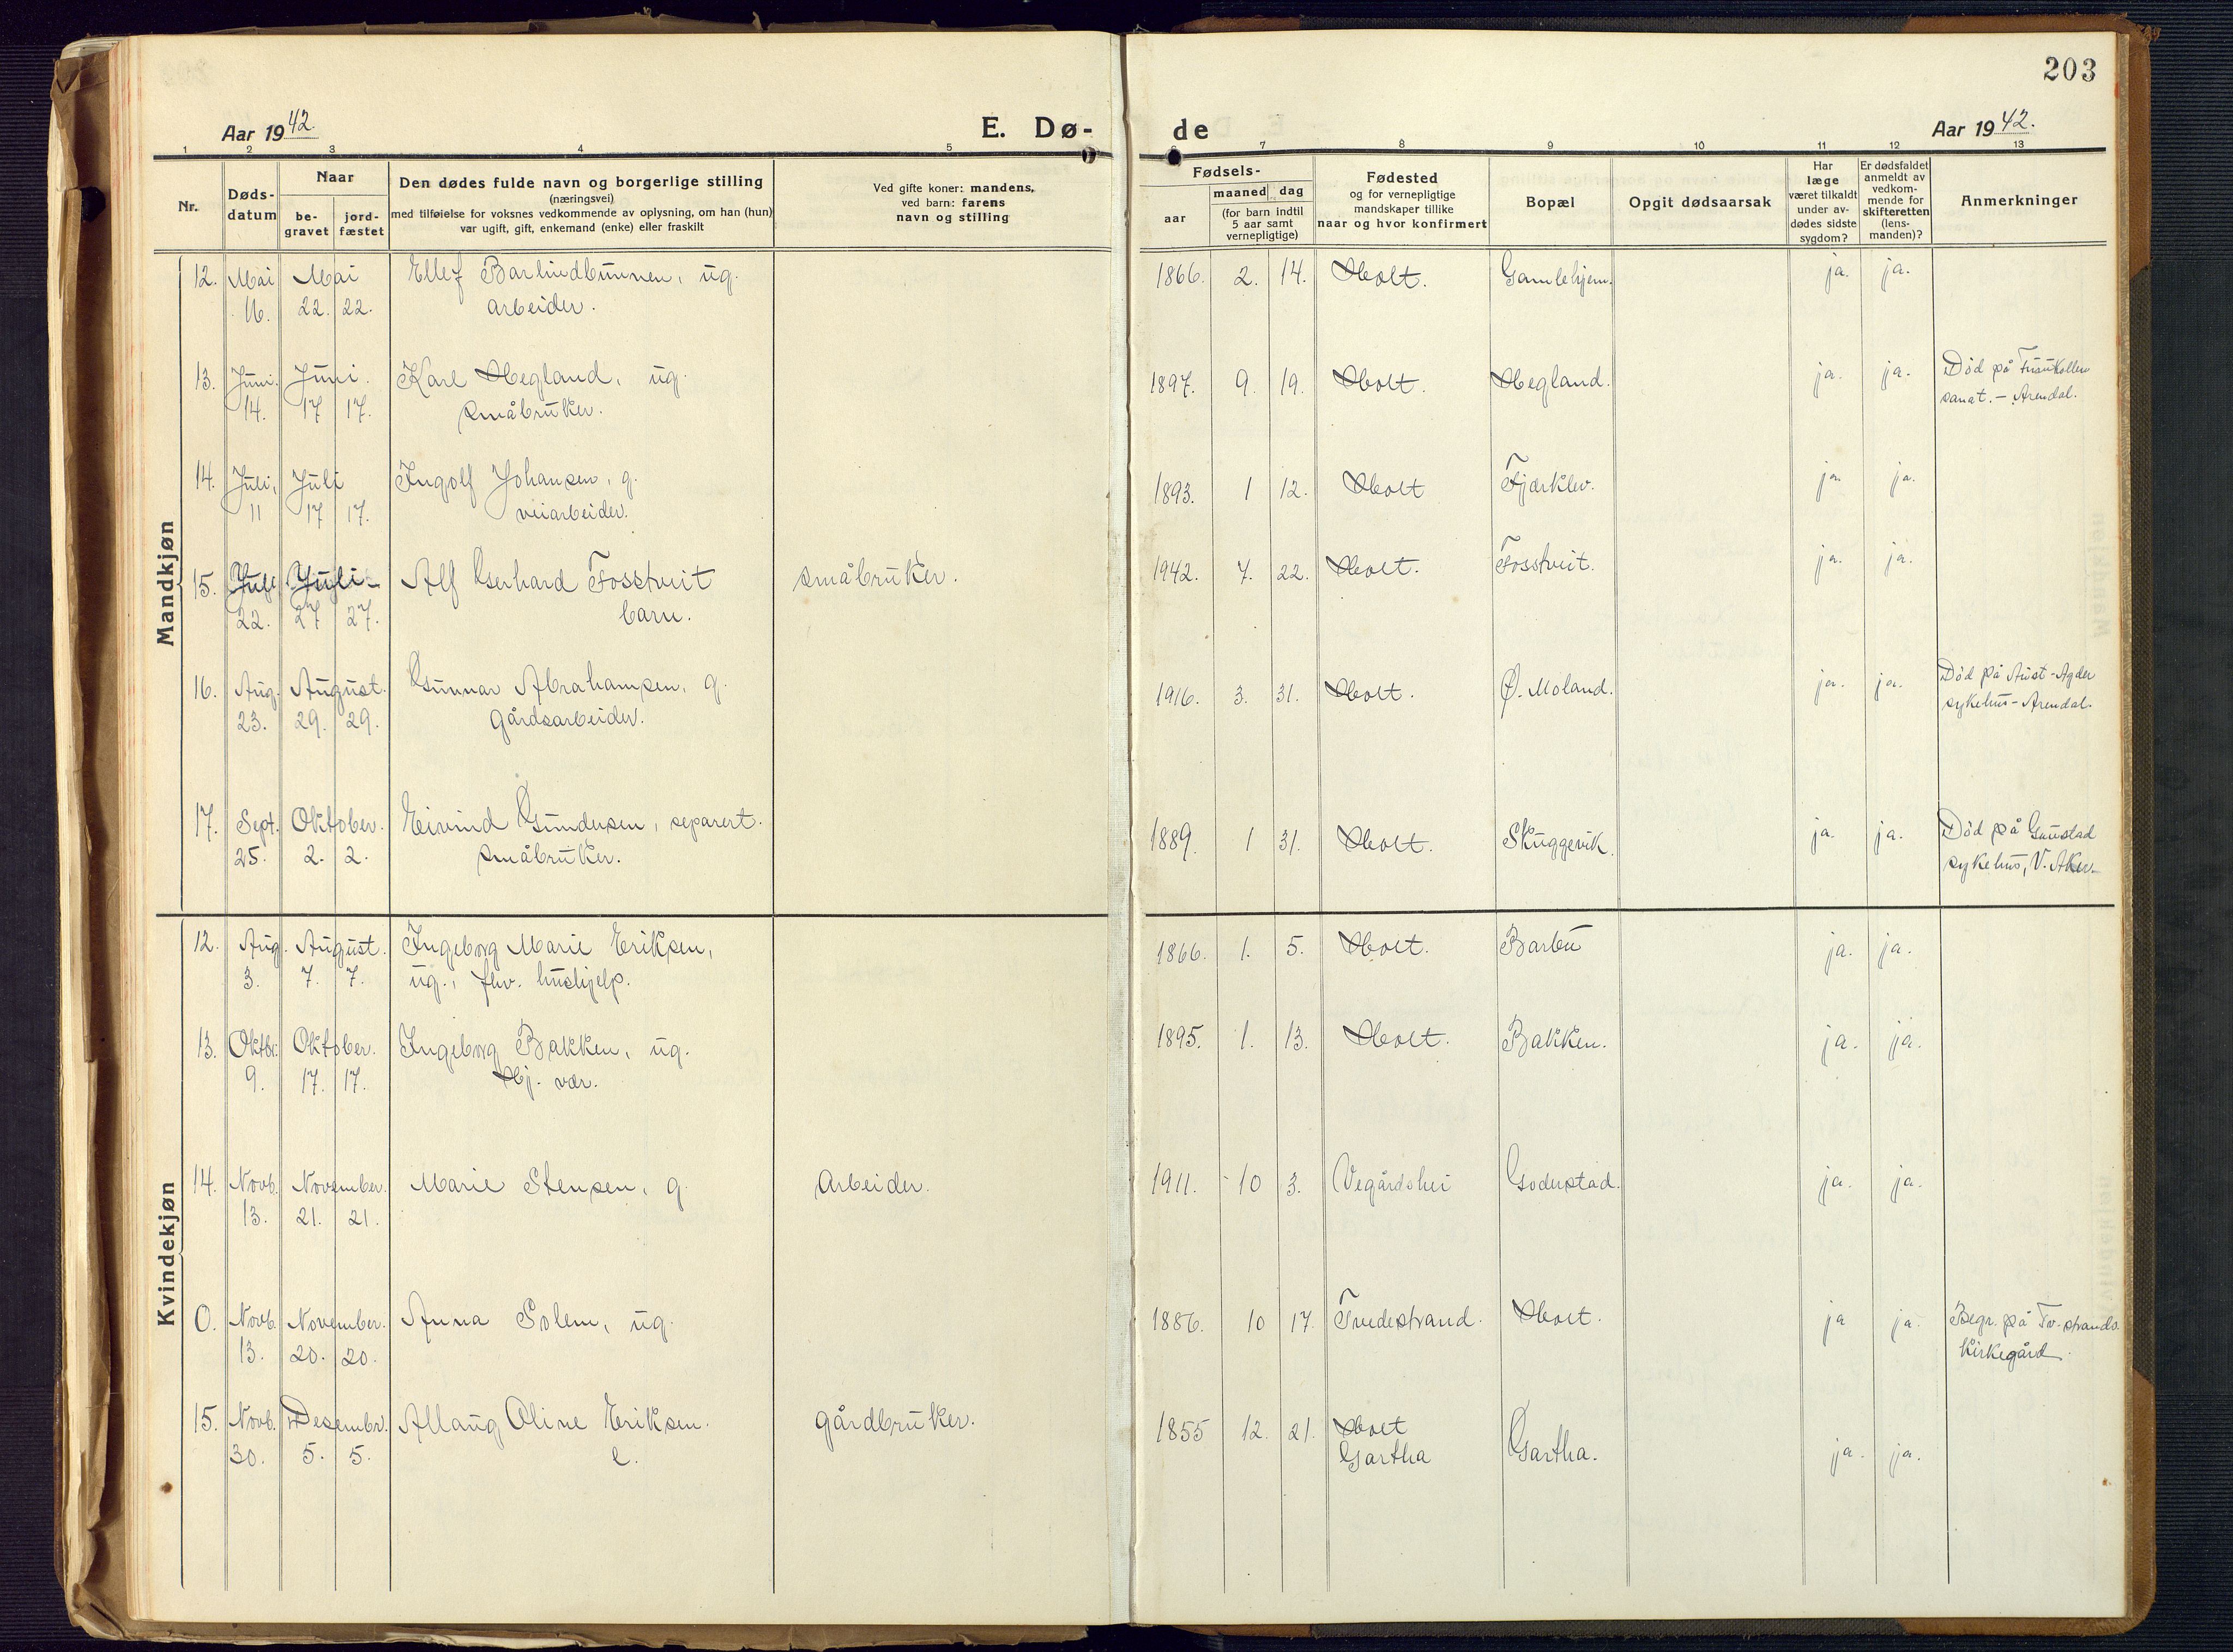 203
Aar 1942.
E. Dø-
de
Aar 1942.
1 2 3 4 5 7 8 9 10 11 12 13
Nr.
Døds-
datum
Naar
be-
gravet
jord-
fæstet
Den dødes fulde navn og borgerlige stilling
(næringsvei)
med tilføielse for voksnes vedkommende av oplysning, om han (hun)
var ugift, gift, enkemand (enke) eller fraskilt
Ved gifte koner: mandens,
ved barn: farens
navn og stilling
Fødsels-
aar
maaned dag
(for barn indtil
5 aar samt
vernepligtige)
Fødested
og for vernepligtige
mandskaper tillike
naar og hvor konfirmert
Bopæl
Opgit dødsaarsak
Har
læge
været tilkaldt
under av-
dødes sidste
sygdom?
Er dødsfaldet
anmeldt av
vedkom-
mende for
skifteretten
(lens-
manden)?
Anmerkninger
Mandkjøn
12. Mai Mai Ellef Barlindbunnen, ug. 1866. 2. 14. Holt. Gamlehjem. ja. ja.
16. 22. 22. arbeider.
13. Juni. Juni. Karl Hegland, ug. 1897. 9. 19. Holt. Hegland. ja. ja. Død på
14. 17 17. småbruker. sanat. – Arendal.
14. Juli, Juli Ingolf Johansen, g. 1893. 1 12. Holt Fjærklev. ja. ja.
11 17 17. veiarbeider.
15. Juli Juli Alf Gerhard Fosstveit småbruker. 1942. 7. 22. Holt. Fosstveit. ja. ja.
22. 27 27. barn.
16. Aug. August. Gunnar Abrahamsen, g. 1916. 3. 31. Holt. Ø. Moland. ja. ja. Død på Aust-Agder
23. 29. 29. gårdsarbeider. sykehus – Arendal.
17. Sept. Oktober. Eivind Gundersen, separert. 1889. 1 31. Holt. Skuggevik. ja. ja. Død på Gaustad
25. 2. 2. småbruker. sykehus, V. Aker.
Kvindekjøn
12. Aug. August. Ingeborg Marie Eriksen, 1866. 1. 5. Holt. Barbu ja. ja.
3. 7. 7. ug., fhv. hushjelp.
13. Oktbr. Oktober. Ingeborg Bakken, ug. 1895. 1. 13. Holt. Bakken. ja. ja.
9. 17. 17. Hj. vær.
14. Novb. November. Marie Stensen, g. Arbeider. 1911. 10 3. Vegårdshei Goderstad. ja. ja.
13. 21. 21.
0. Novb. November. Anna Solem, ug. 1886. 10 17. Tvedestrand. Holt. ja ja. Begr. på Tv-strands
13. 20. 20. kirkegård.
15. Novb. Desembr. Allaug Oline Eriksen. gårdbruker. 1855 12. 21. Holt
30. 5. 5. e. Gartha Gartha. ja. ja.